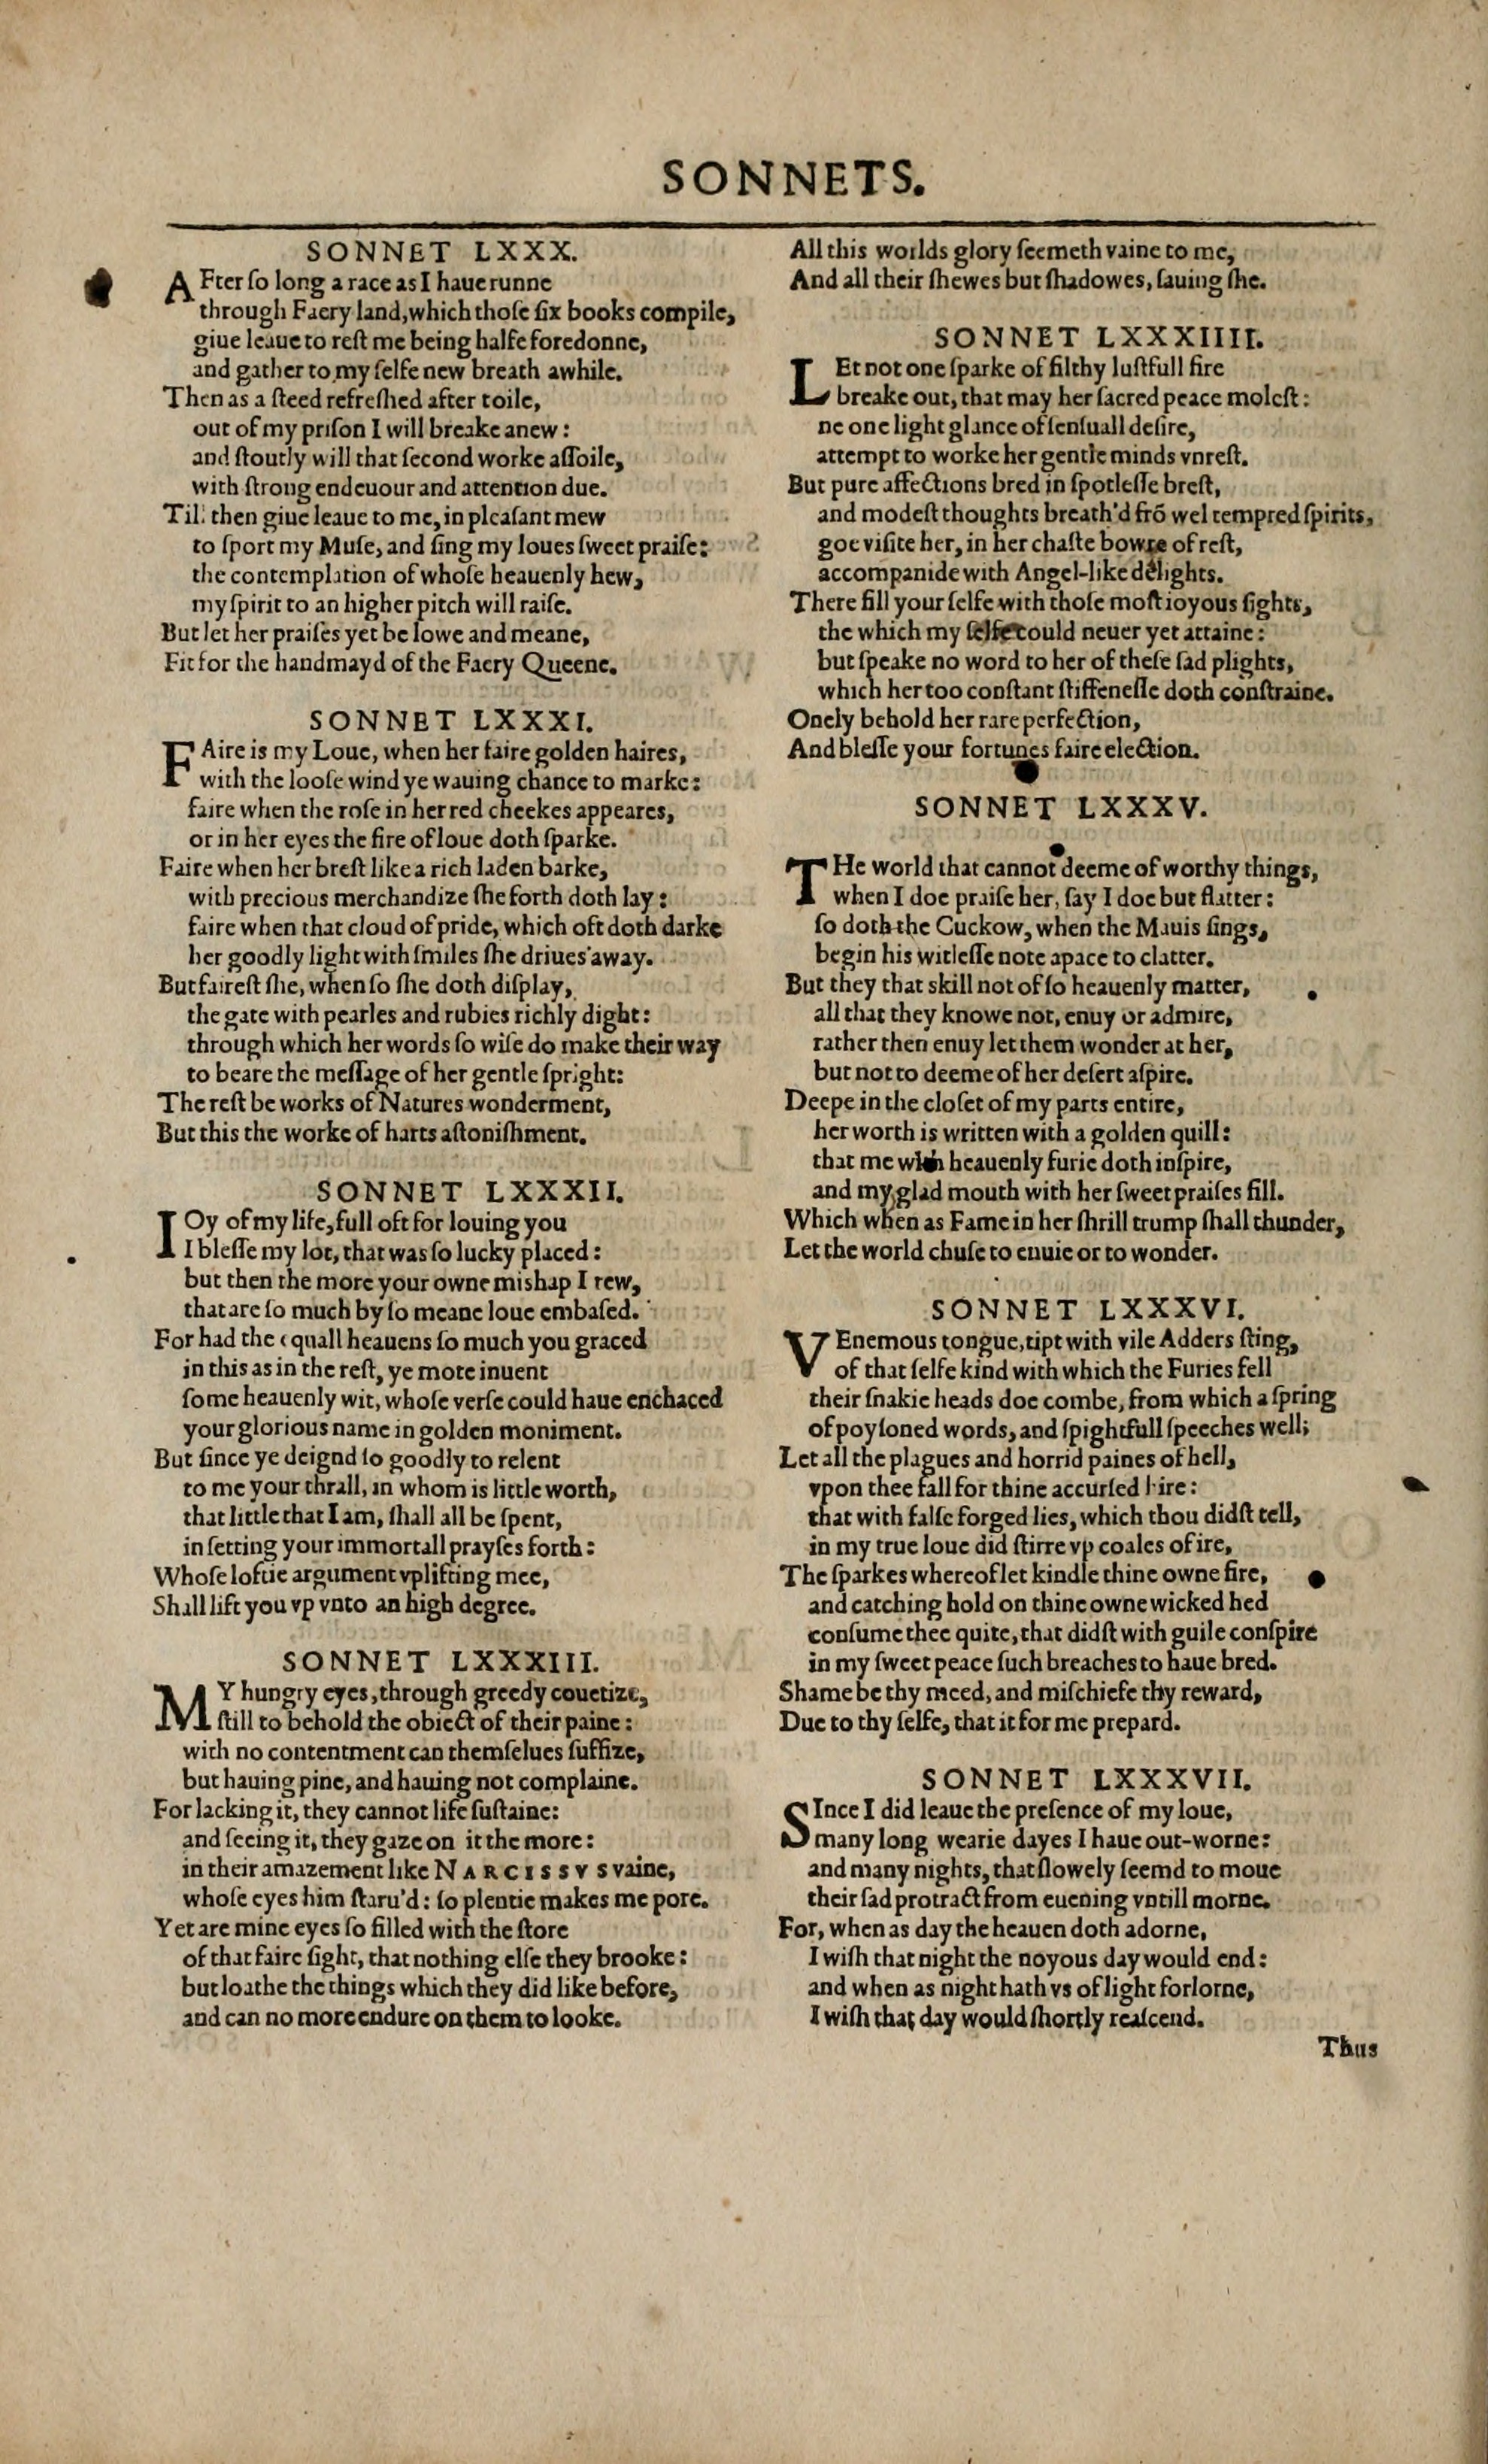 SONNETS.
SONNET LXXX.
AFter ſo long a race as I haue runne
through Faery land, which thoſe ſix books compile,
giue leaue to reſt me being halfe foredonne,
and gather to my ſelfe new breath awhile.
Then as a ſteed refreſhed after toile,
out of my priſon I will breake anew:
and ſtoutly will that ſecond worke aſſoile,
with ſtrong endeuour and attention due.
Till then giue leaue to me, in pleaſant mew
to ſport my Muſe, and ſing my loues ſweet praiſe:
the contemplation of whoſe heauenly hew,
my ſpirit to an higher pitch will raiſe.
But let her praiſes yet be lowe and meane,
Fit for the handmayd of the Faery Queene.
SONNET LXXXI.
FAire is my Loue, when her faire golden haires,
with the looſe wind ye wauing chance to marke:
faire when the roſe in her red cheekes appeares,
or in her eyes the fire of loue doth ſparke.
Faire when her breſt like a rich laden barke,
with precious merchandize ſhe forth doth lay:
faire when that cloud of pride, which oft doth darke
her goodly light with ſmiles ſhe driues away.
But faireſt ſhe, when ſo ſhe doth diſplay,
the gate with pearles and rubies richly dight:
through which her words ſo wiſe do make their way
to beare the meſſage of her gentle ſpright:
The reſt be works of Natures wonderment,
But this the worke of harts aſtoniſhment.
SONNET LXXXII.
IOy of my life, full oft for louing you
I bleſſe my lot, that was ſo lucky placed:
but then the more your owne mishap I rew,
that are ſo much by ſo meane loue embaſed.
For had the equall heauens ſo much you graced
in this as in the reſt, ye mote inuent
ſome heauenly wit, whoſe verſe could haue enchaced
your glorious name in golden moniment.
But ſince ye deignd ſo goodly to relent
to me your thrall, in whom is little worth,
that little that I am, ſhall all be ſpent,
in ſetting your immortall prayſes forth:
Whoſe loftie argument vplifting mee,
Shall lift you vp vnto an high degree.
SONNET LXXXIII.
MY hungry eyes, through greedy couetize,
ſtill to behold the obiect of their paine:
with no contentment can themſelues ſuffize,
but hauing pine, and hauing not complaine.
For lacking it, they cannot life ſuſtaine:
and ſeeing it, they gaze on it the more:
in their amazement like NARCISSVS vaine,
whoſe eyes him ſtaru'd: ſo plentie makes me pore.
Yet are mine eyes ſo filled with the ſtore
of that faire ſight, that nothing elſe they brooke:
but loathe the things which they did like before,
and can no more endure on them to looke.
All this worlds glory ſeemeth vaine to me,
And all their ſhewes but ſhadowes, ſauing ſhe.
SONNET LXXXIIII.
LEt not one ſparke of filthy luſtfull fire
breake out, that may her ſacred peace moleſt:
ne one light glance of ſenſuall deſire,
attempt to worke her gentle minds vnreſt.
But pure affections bred in ſpotleſſe breſt,
and modeſt thoughts breath'd frõ wel tempred ſpirits,
goe viſite her, in her chaſte bowre of reſt,
accompanide with Angel-like delights.
There fill your ſelfe with thoſe moſt ioyous ſights,
the which my ſelfe could neuer yet attaine:
but ſpeake no word to her of theſe ſad plights,
which her too conſtant ſtiffeneſſe doth conſtraine.
Onely behold her rare perfection,
And bleſſe your fortunes faire election.
SONNET LXXXV.
THe world that cannot deeme of worthy things,
when I doe praiſe her, ſay I doe but flatter:
ſo doth the Cuckow, when the Mauis ſings,
begin his witleſſe note apace to clatter.
But they that skill not of ſo heauenly matter,
all that they knowe not, enuy or admire,
rather then enuy let them wonder at her,
but not to deeme of her deſert aſpire.
Deepe in the cloſet of my parts entire,
her worth is written with a golden quill:
that me with heauenly furie doth inſpire,
and my glad mouth with her ſweet praiſes fill.
Which when as Fame in her ſhrill trump ſhall thunder,
Let the world chuſe to enuie or to wonder.
SONNET LXXXVI.
VEnemous tongue, tipt with vile Adders ſting,
of that ſelfe kind with which the Furies fell
their ſnakie heads doe combe, from which a ſpring
of poyſoned words, and ſpightfull ſpeeches well;
Let all the plagues and horrid paines of hell,
vpon thee fall for thine accurſed hire:
that with falſe forged lies, which thou didſt tell,
in my true loue did ſtirre vp coales of ire,
The ſparkes whereof let kindle thine owne fire,
and catching hold on thine owne wicked hed
conſume thee quite, that didſt with guile conſpire
in my ſweet peace ſuch breaches to haue bred.
Shame be thy meed, and miſchiefe thy reward,
Due to thy ſelfe, that it for me prepard.
SONNET LXXXVII.
SInce I did leaue the preſence of my loue,
many long wearie dayes I haue out-worne:
and many nights, that ſlowely ſeemd to moue
their ſad protract from euening vntill morne.
For, when as day the heauen doth adorne,
I wiſh that night the noyous day would end:
and when as night hath vs of light forlorne,
I wiſh that day would ſhortly reaſcend.
Thus